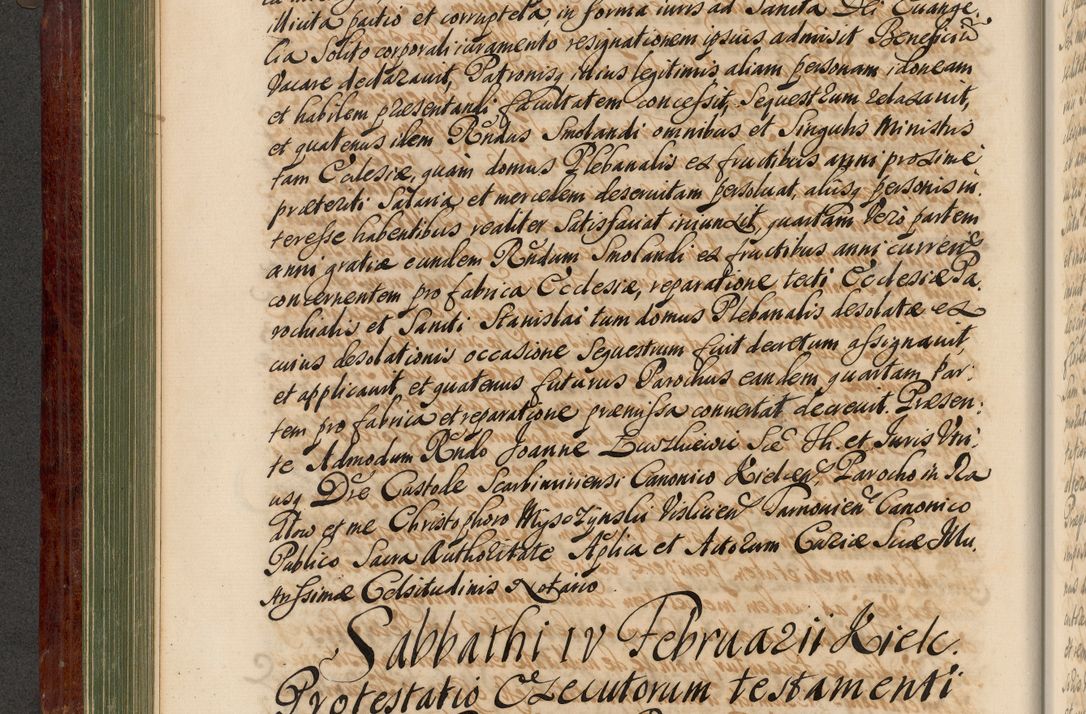 illicita pactio et corruptela in forma iuris ad Sancta Dei Evange,
lia Solito corporali iuramento resignationem ipsius admisit Beneficiũ
Vacare declaravit, Patronisq illius legitimis aliam personam idoneam
et habilem præsentandi facultatem concessit, Sequestrum relaxavit,
et quatenus idem Rñdus Smolandi omnibus et Singulis Ministris
tam Ecclesiæ, quam domus Plebanalis ex fructibus anni proxime
præteriti Salaria et mercedem deservitam persolvat, aliisq personis in,
teresse habentibus realiter Satisfaciat iniunxit quartam Vero partem
anni gratiæ eundem Rñdum Smolandi ex fructibus anni curren
concernentem pro fabrica Ecclesiæ, reparatione tecti Ecclesiæ Pa,
rochialis et Sancti Stanislai tum domus Plebanalis desolatæ ex
cuius desolationis occasione Sequestrum fuit decretum assignavit,
et applicavit, et quatenus futurus Parochus eandem quartam par:
tem pro fabrica et reparatione præmissa convertat decrevit. Præsen:
te Admodum Rñdo Joanne Ło Th. et Juris Utri,
usq Dre Custode Scarbimiriensi Canonico Kielcen, Parocho in Ra
dlow et me Christophoro Myszczynski Visliciens Tarnovien Canonico
Publico Sacra Authoritate Aplica et Actorum Curiæ Suæ Illu,
strissimæ Celsitudinis Notario
Sabbathi IV Februarii Kielc.
Protestatio Execcutorum testamenti